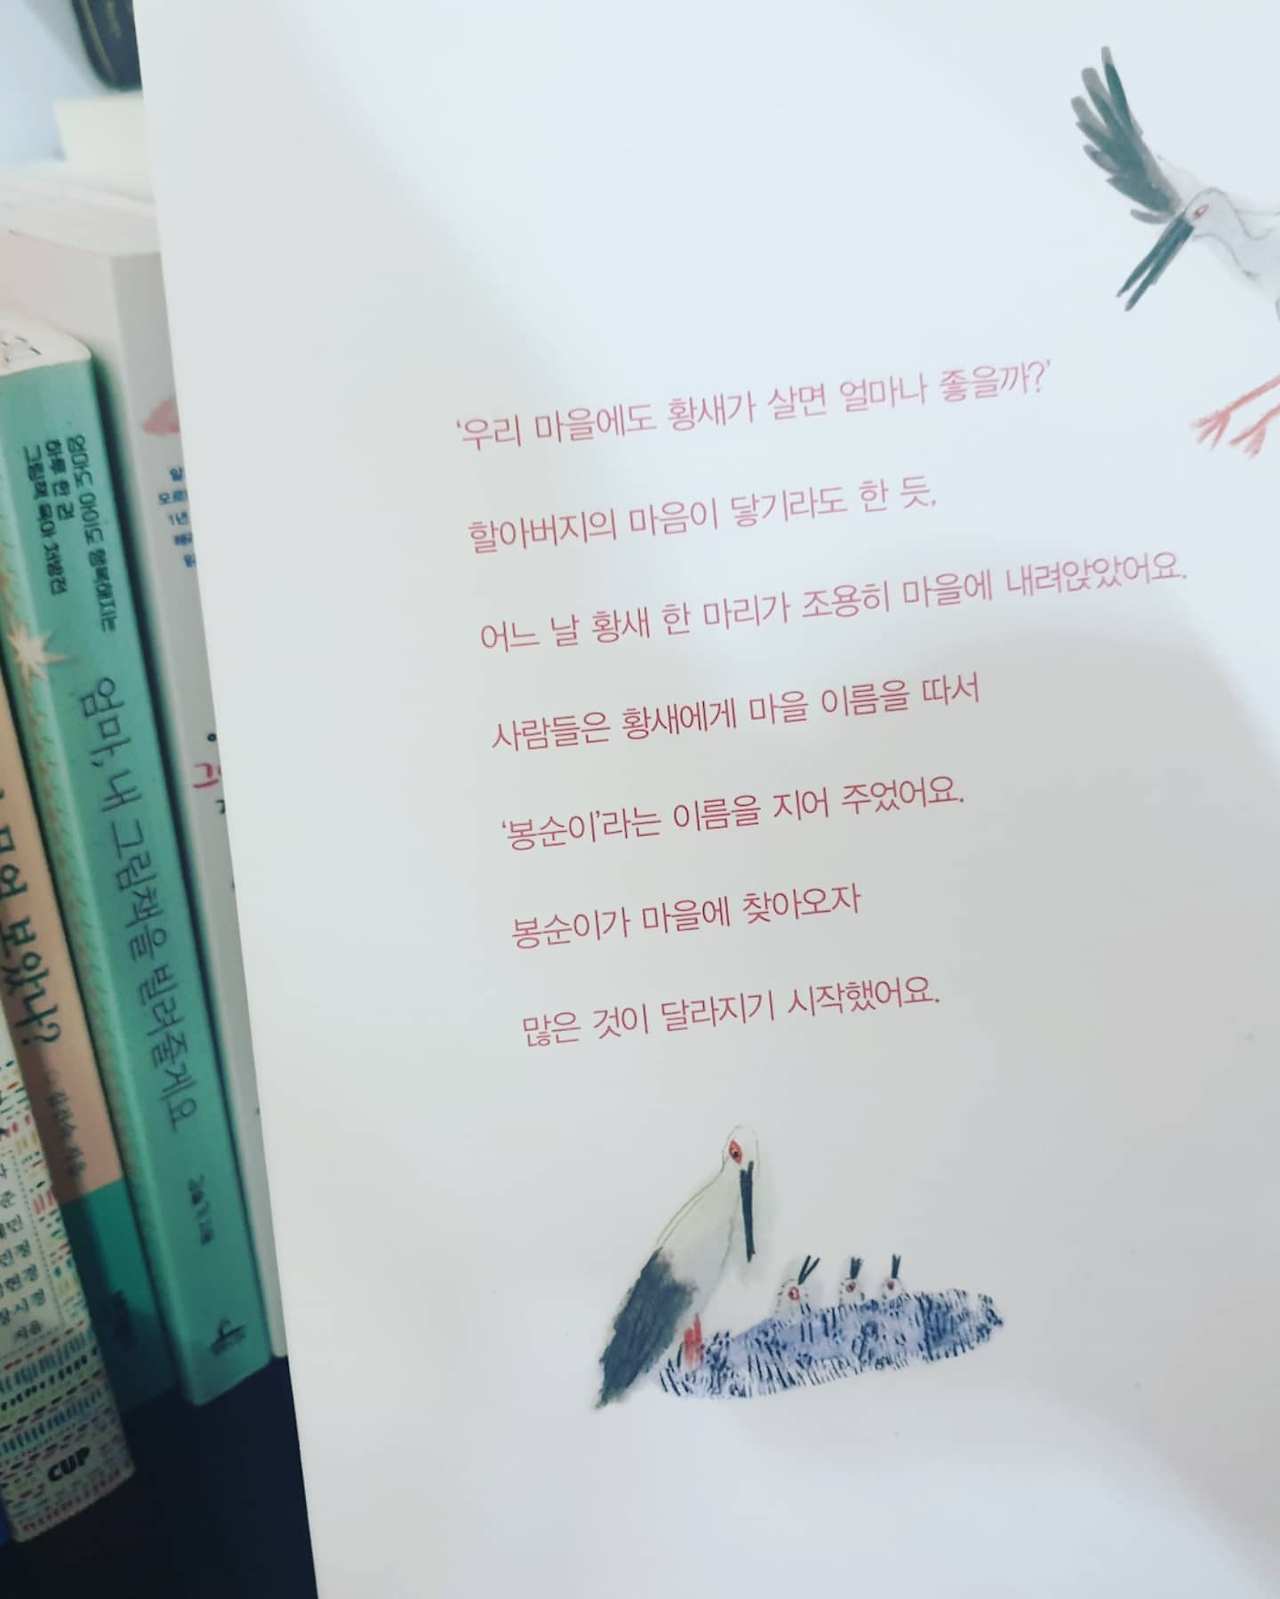 ‘우리 마을에도 황새가 살면 얼마나 좋을까?’
할아버지의 마음이 닿기라도 한 듯,
어느 날 황새 한 마리가 조용히 마을에 내려앉았어요.
사람들은 황새에게 마을 이름을 따서
‘봉순이’라는 이름을 지어 주었어요.
봉순이가 마을에 찾아오자
많은 것이 달라지기 시작했어요.
엄마도 아이도 행복해지는
하루 한 권
그림책 육아 처방전
엄마, 내 그림책을 빌려줄게요
보았나?
CUP